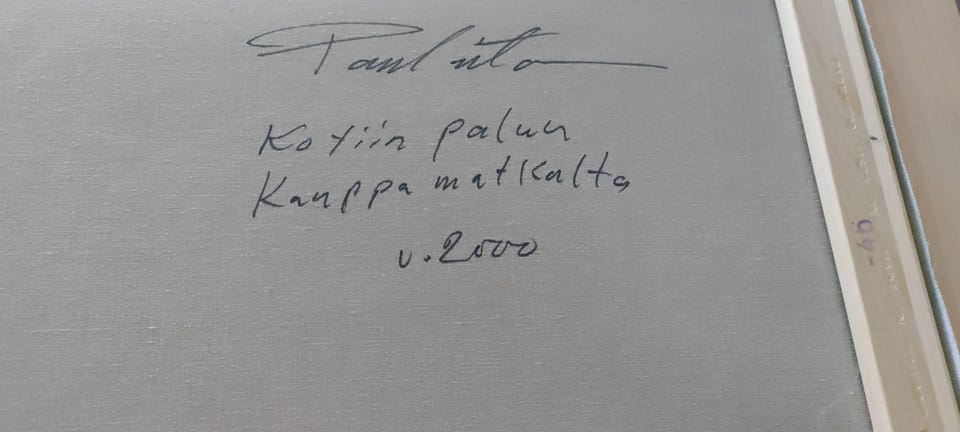 Kotiin paluu
Kauppa matkalta
v.2000
-40